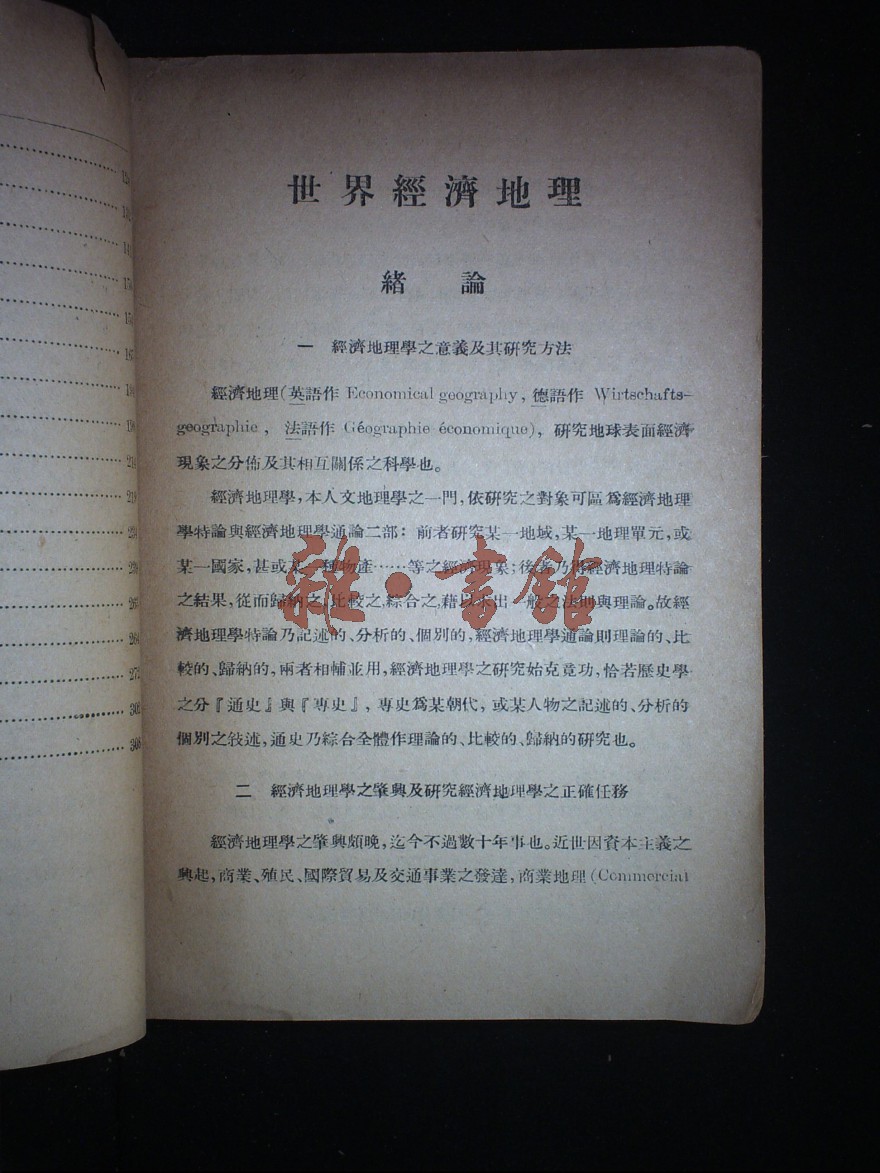 世界經濟地理
緒 論
一 經濟地理學之意義及其研究方法
經濟地理(英語作 Economical geography, 德語作 Wirtschafts-
geographie, 法語作 Géographie économique), 研究地球表面經濟
現象之分佈及其相互關係之科學也。
經濟地理學,本人文地理學之一門,依研究之對象可區爲經濟地理
學特論與經濟地理學通論二部: 前者研究某一地域,某一地理單元,或
某一國家,甚或某一種物產……等之經濟現象;後者乃將經濟地理特論
之結果,從而歸納之、比較之,綜合之,藉以求出一般之法則與理論。故經
濟地理學特論乃記述的、分析的、個別的,經濟地理學通論則理論的、比
較的、歸納的,兩者相輔並用,經濟地理學之研究始克竟功,恰若歷史學
之分『通史』與『專史』, 專史爲某朝代, 或某人物之記述的、分析的
個別之敍述,通史乃綜合全體作理論的、比較的、歸納的研究也。
二 經濟地理學之肇興及研究經濟地理學之正確任務
經濟地理學之肇興頗晚,迄今不過數十年事也。近世因資本主義之
興起,商業、殖民、國際貿易及交通事業之發達,商業地理(Commercial
雜·書館
214
219
234
264
302
308